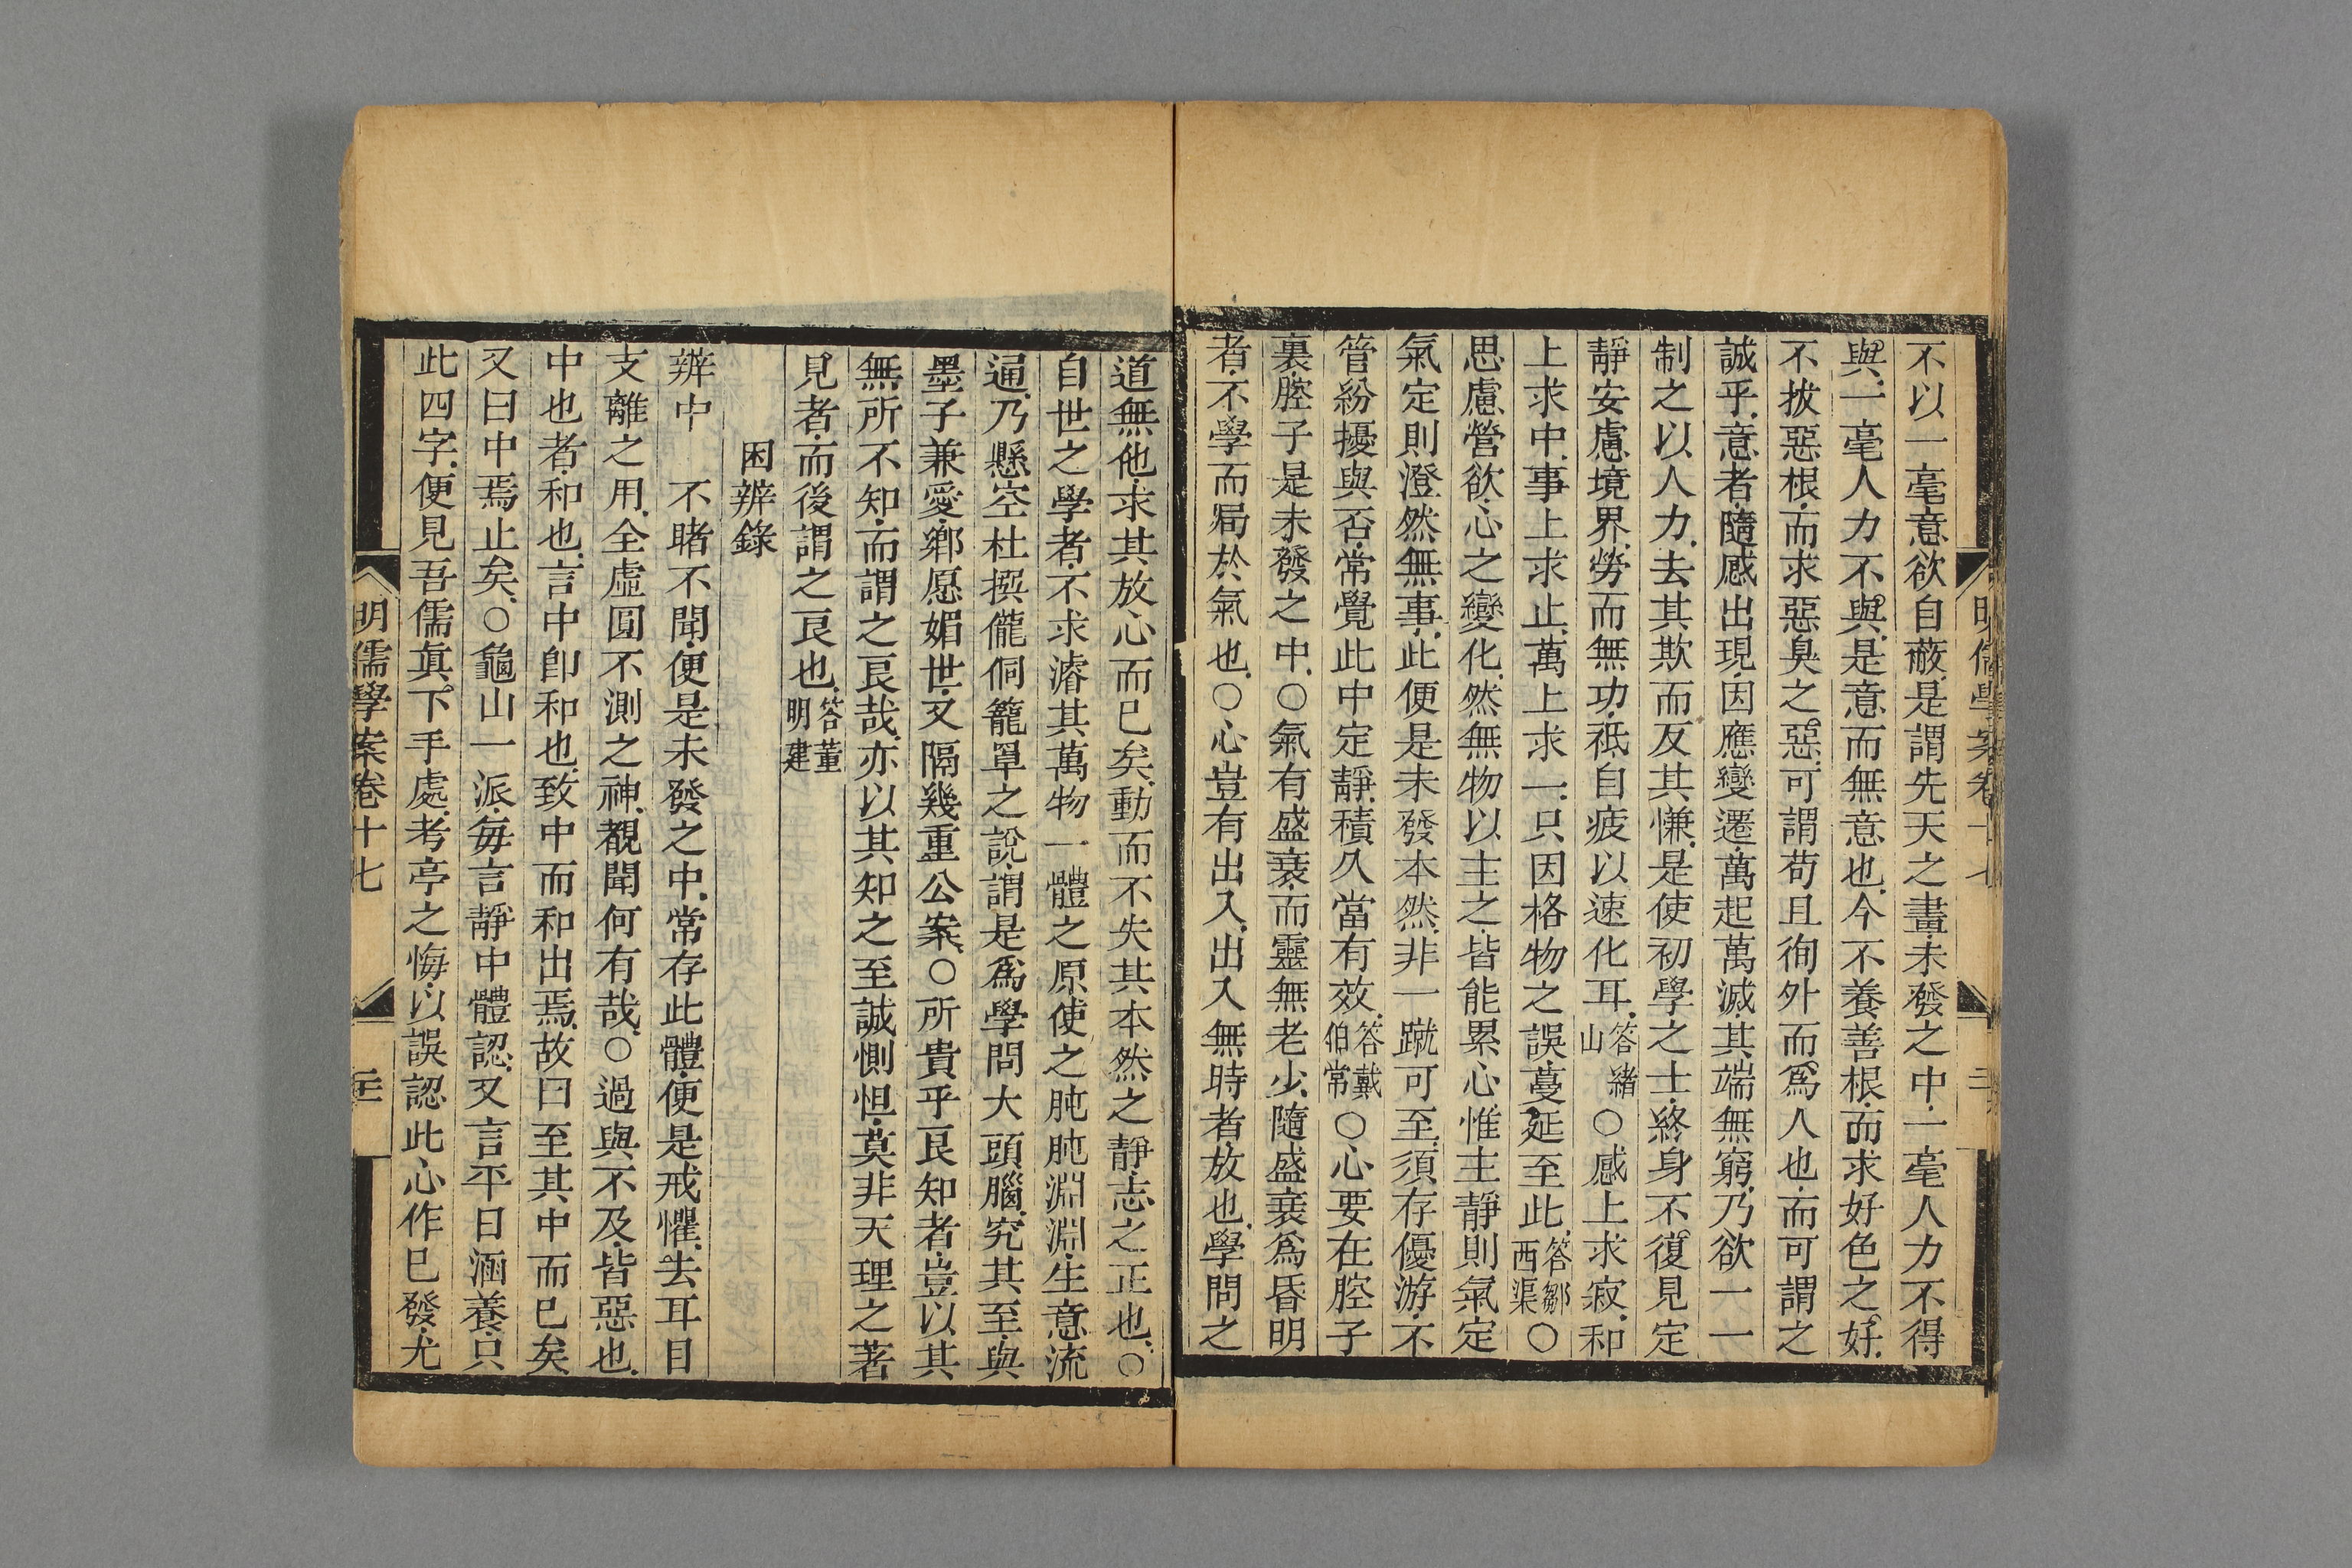 不以一毫意欲自蔽是謂先天之畫未發之中一毫人力不得
與一毫人力不與是意而無意也今不養善根而求好色之好
不拔惡根而求惡臭之惡可謂苟且徇外而爲人也而可謂之
誠乎意者隨感出現因應變遷萬起萬滅其端無窮乃欲一一
制之以人力去其欺而反其慊是使初學之士終身不復見定
靜安慮境界勞而無功祇自疲以速化耳答緒山○感上求寂和
上求中事上求止萬上求一只因格物之誤蔓延至此答鄒西渠○
思慮營欲心之變化然無物以主之皆能累心惟主靜則氣定
氣定則澄然無事此便是未發本然非一蹴可至須存優游不
管紛擾與否常覺此中定靜積久當有效答戴伯常○心要在腔子
裏腔子是未發之中○氣有盛衰而靈無老少隨盛衰爲昏明
者不學而局於氣也○心豈有出入出入無時者放也學問之
道無他求其放心而已矣動而不失其本然之靜志之正也○
自世之學者不求濬其萬物一體之原使之肫肫淵淵生意流
通乃懸空杜撰儱侗籠罩之說謂是爲學問大頭腦究其至與
墨子兼愛鄉愿媚世又隔幾重公案○所貴乎良知者豈以其
無所不知而謂之良哉亦以其知之至誠惻怛莫非天理之著
見者而後謂之良也答董明建
困辨錄
辨中　不睹不聞便是未發之中常存此體便是戒懼去耳目
支離之用全虛圓不測之神覩聞何有哉○過與不及皆惡也
中也者和也言中卽和也致中而和出焉故曰至其中而已矣
又曰中焉止矣○龜山一派每言靜中體認又言平日涵養只
此四字便見吾儒眞下手處考亭之悔以誤認此心作已發尤
明儒學案卷十七